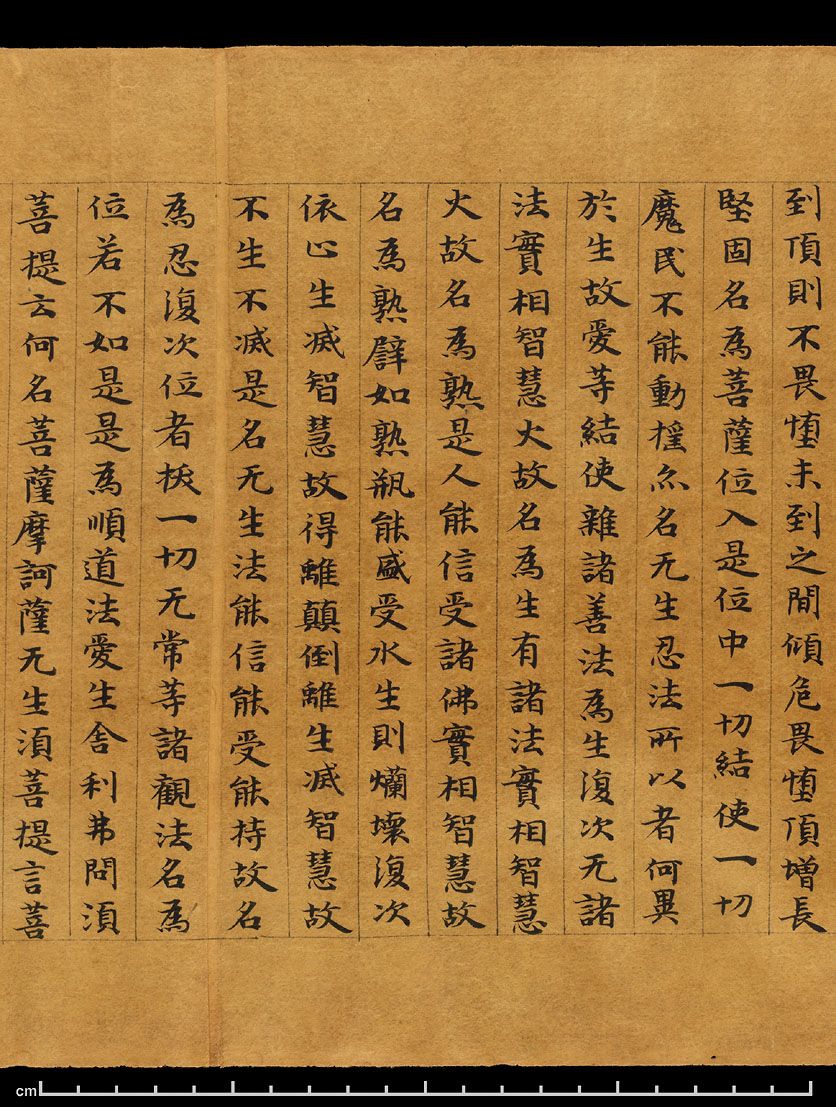 到頂則不畏墮未到之間傾危畏墮頂增長
堅固名為菩薩位入是位中一切結使一切
魔民不能動搖亦名无生忍法所以者何異
於生故愛等結使雜諸善法為生復次无諸
法實相智慧火故名為生有諸法實相智慧
火故名為熟是人能信受諸佛實相智慧故
名為熟譬如熟瓶能盛受水生則爛壞復次
依止生滅智慧故得離顛倒離生滅智慧故
不生不滅是名无生法能信能受能持故名
為忍復次位者拔一切无常等諸觀法名為
位若不如是是為順道法愛生舍利弗問須
菩提云何名菩薩摩訶薩无生須菩提言菩
cm